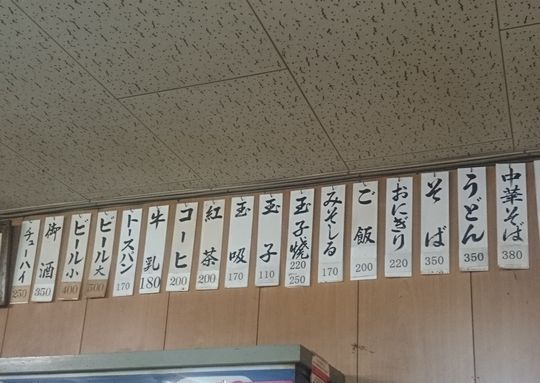 中華そば 380
うどん 350
そば 350
おにぎり 220
ご飯 200
みそしる 170
玉子焼 220 250
玉子 110
玉吸 170
紅茶 200
コーヒ 200
牛乳 180
トースパン 170
ビール大 500
ビール小 400
御酒 350
チューハイ 250